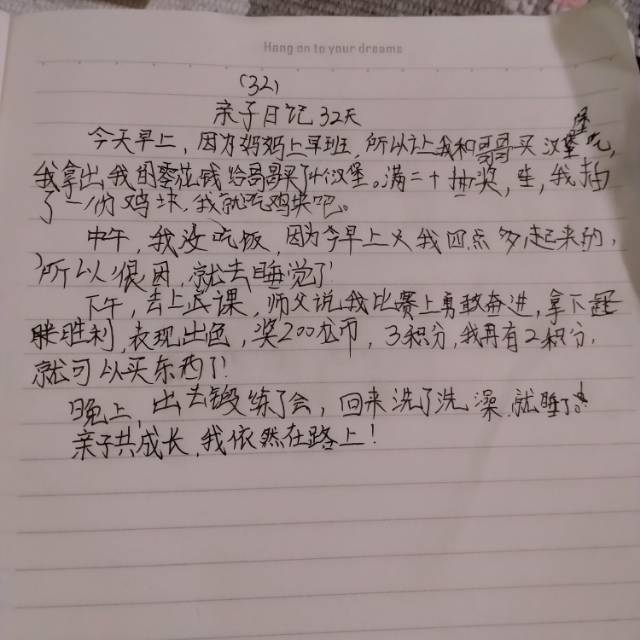 Hang on to your dreams
(32)
亲子日记32天
今天早上，因为妈妈上早班，所以让我和哥哥买汉堡吃，
我拿出我的零花钱给哥哥买了个汉堡。满二十抽奖，我抽
了一份鸡块，我就吃鸡块吧。
中午，我没吃饭，因为今早上又我四点多起来的，
所以很困，就去睡觉了！
下午，去上武课，师父说我比赛上勇敢奋进，拿下
胜利，表现出色，奖200龙币，3积分，我再有2积分，
就可以买东西了！
晚上，出去锻练了会，回来洗了洗澡，就睡了。
亲子共成长，我依然在路上！